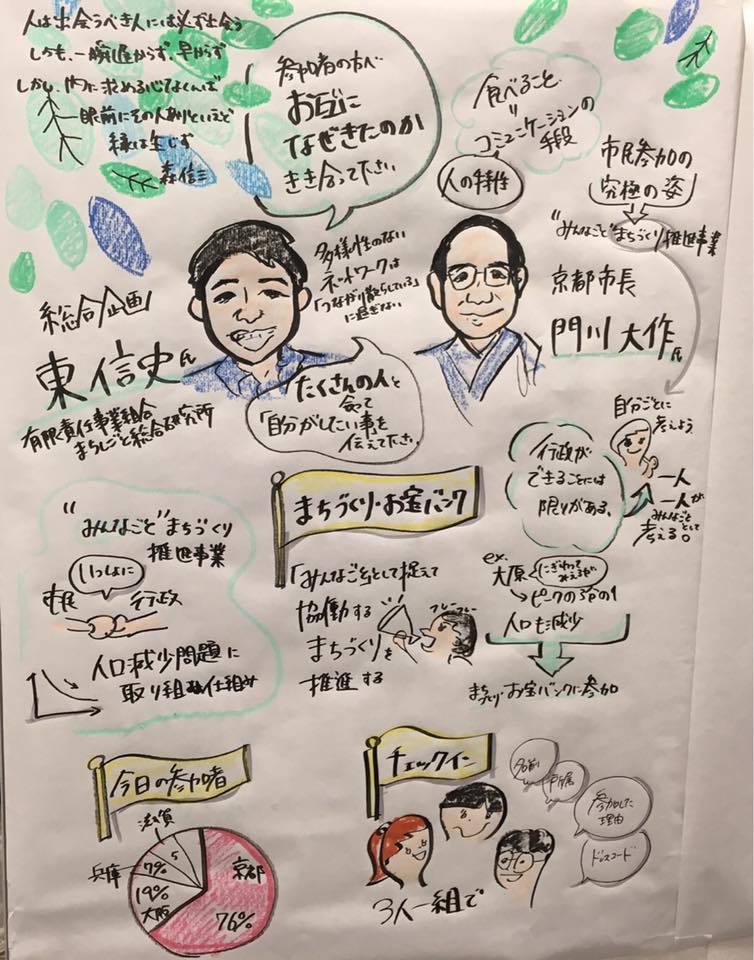 人は出会うべき人には必ず出会う
しかも、一瞬遅からず、早からず
しかし、内に求める心なくんば
眼前にその人ありといえど
縁は生じず
森信三
参加者の方へ
お互いに
なぜきたのか
きき合って下さい
食べること
"
コミュニケーションの
手段
人の特性
市民参加の
究極の姿
"みんなごと"まちづくり推進事業
京都市長
門川大作氏
総合企画
東信史氏
有限責任事業組合
まちしごと総合研究所
多様性のない
ネットワークは
「つながり散らしている」
に過ぎない
たくさんの人と
会って
「自分がしたい事を
伝えて下さい
自分ごとに
考えよう
行政が
できることには
限りがある。
一人
一人が
みんなごととして
考える。
まちづくり・お宝バンク
"みんなごと"まちづくり
推進事業
いっしょに
市民
行政
人口減少問題に
取り組む仕組み
「みんなごと」として捉えて
協働する
まちづくりを
推進する
フレーフレー
ex.
大原
にぎわって
みえるが
ピークの3分の1
人口も減少
まちづくり・お宝バンクに参加
今日の参加者
滋賀
5
兵庫
7%
19%
大阪
京都
76%
チェックイン
名前
所属
参加した
理由
ドレスコード
3人一組で